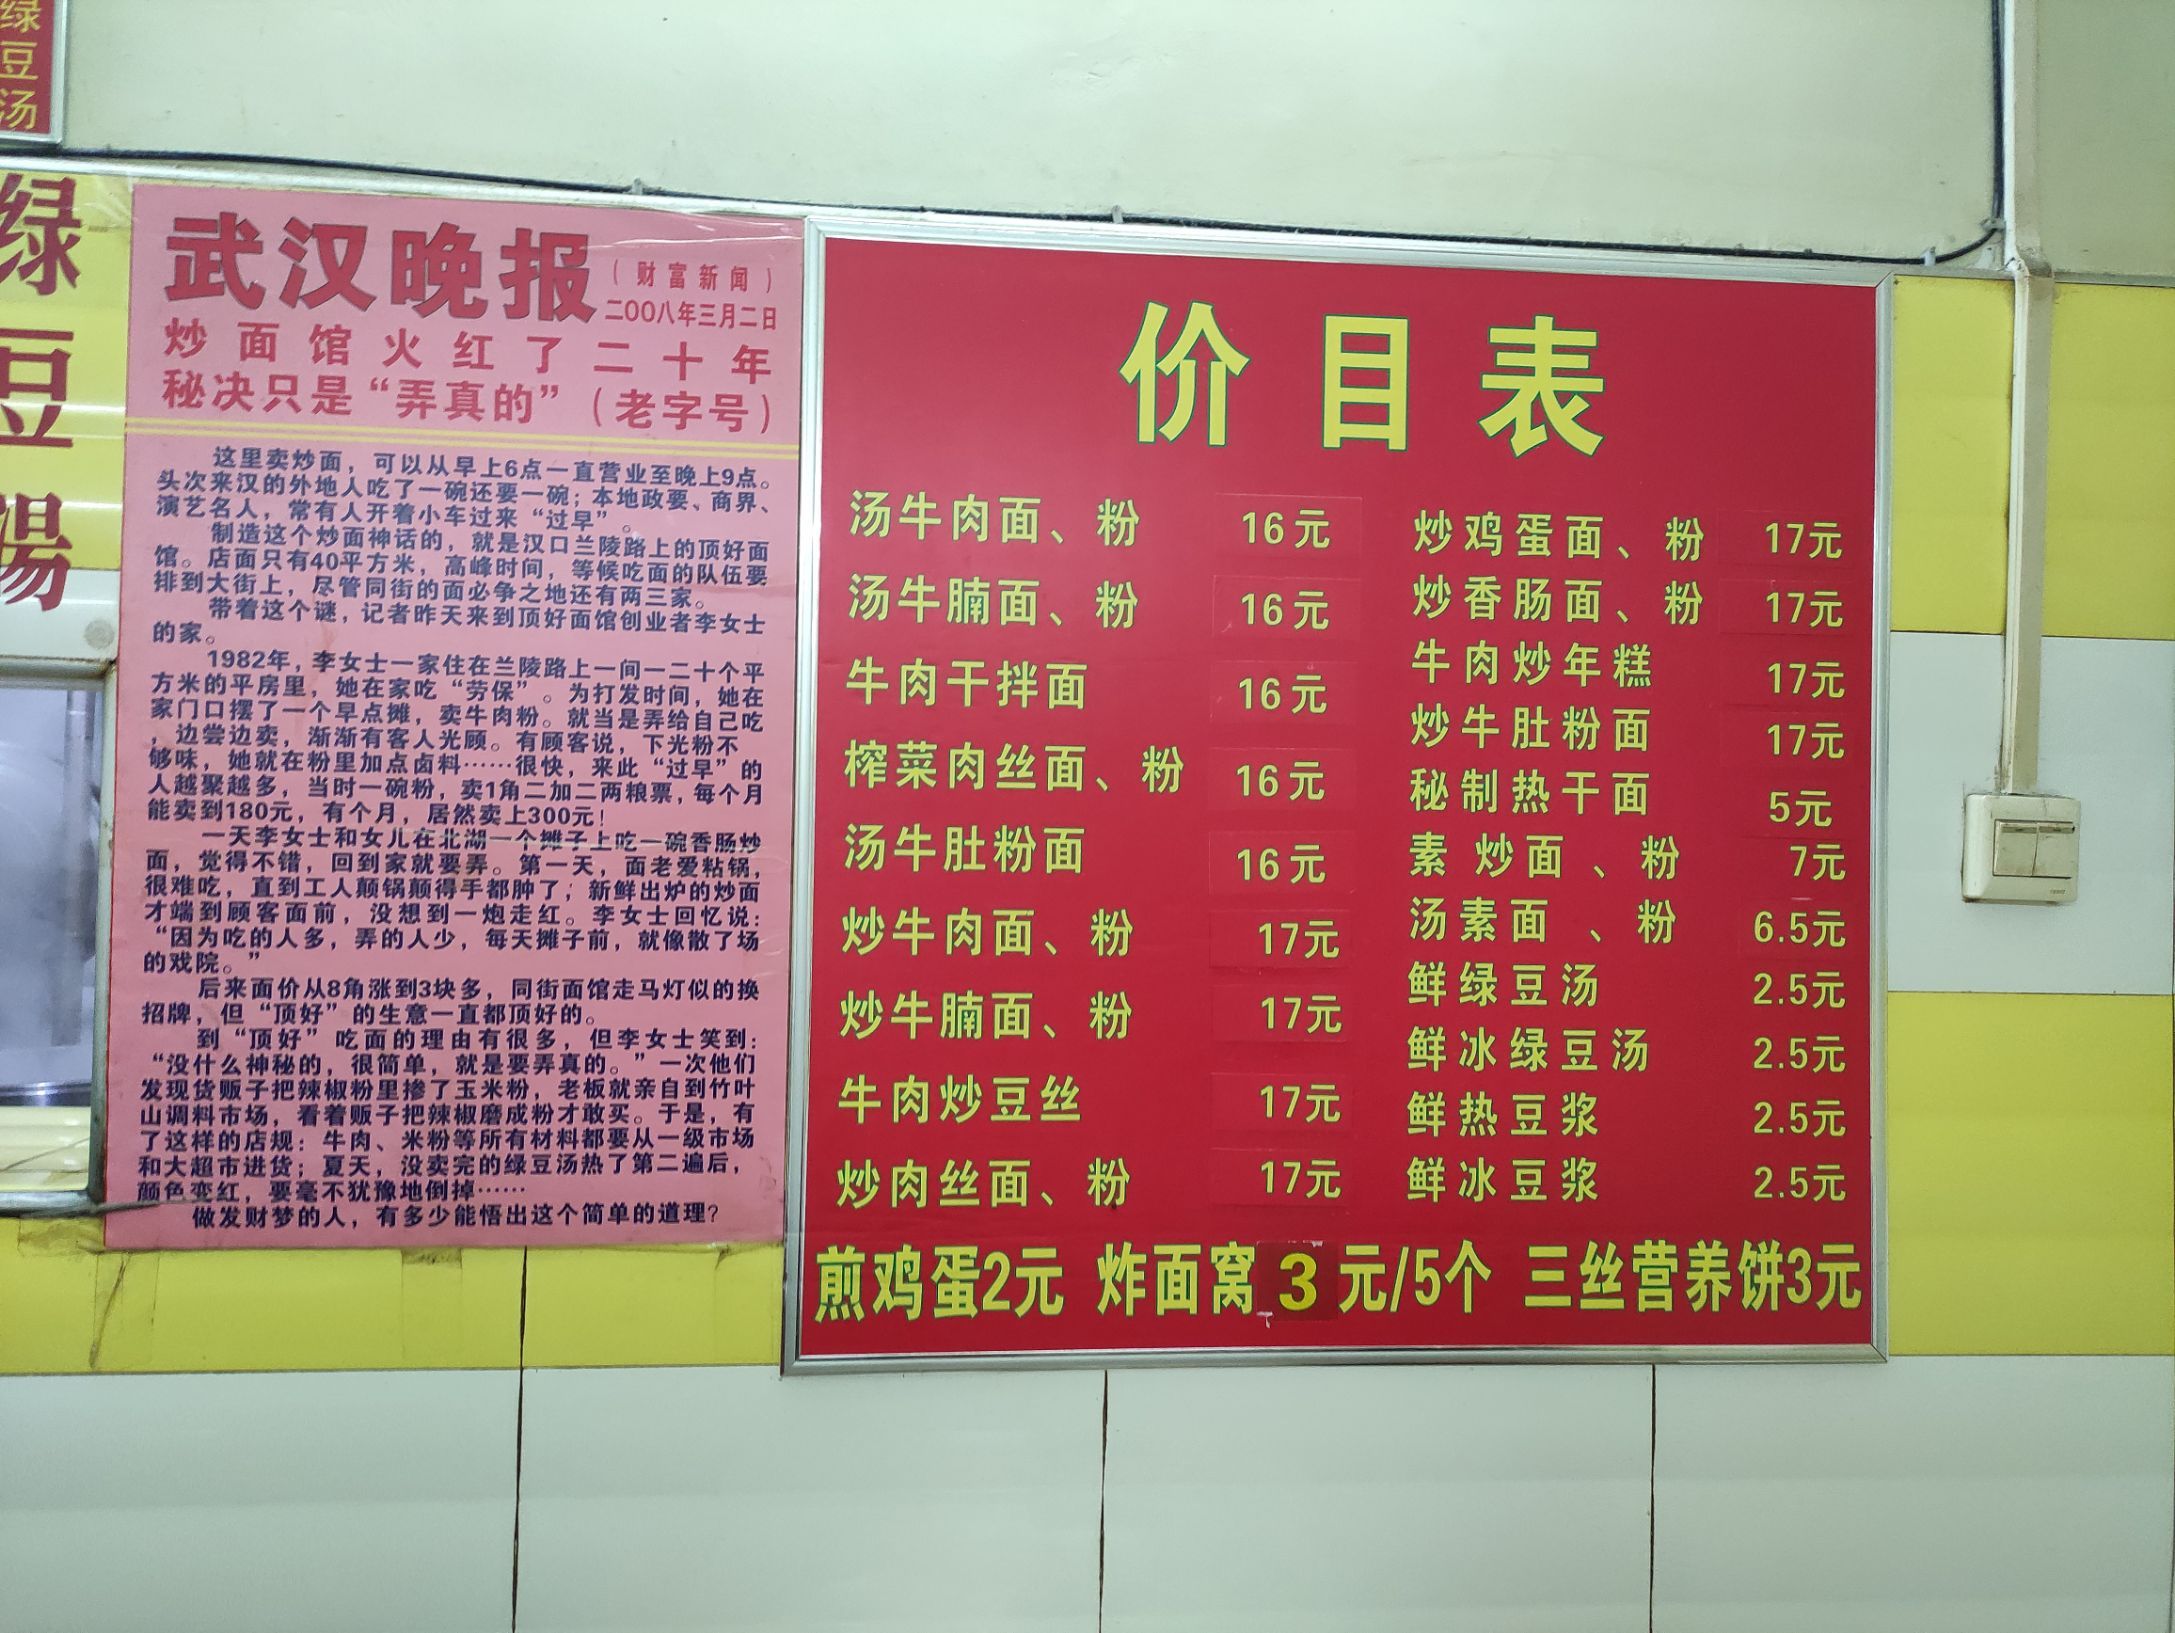 绿豆汤
绿豆湯
武汉晚报
（财富新闻）
二〇〇八年三月二日
炒面馆火红了二十年
秘决只是“弄真的”（老字号）
这里卖炒面，可以从早上6点一直营业至晚上9点。
头次来汉的外地人吃了一碗还要一碗；本地政要、商界、
演艺名人，常有人开着小车过来“过早”。
制造这个炒面神话的，就是汉口兰陵路上的顶好面
馆。店面只有40平方米，高峰时间，等候吃面的队伍要
排到大街上，尽管同街的面必争之地还有两三家。
带着这个谜，记者昨天来到顶好面馆创业者李女士
的家。
1982年，李女士一家住在兰陵路上一间一二十个平
方米的平房里，她在家吃“劳保”。为打发时间，她在
家门口摆了一个早点摊，卖牛肉粉。就当是弄给自己吃
，边尝边卖，渐渐有客人光顾。有顾客说，下光粉不
够味，她就在粉里加点卤料……很快，来此“过早”的
人越聚越多，当时一碗粉，卖1角二加二两粮票，每个月
能卖到180元，有个月，居然卖上300元！
一天李女士和女儿在北湖一个摊子上吃一碗香肠炒
面，觉得不错，回到家就要弄。第一天，面老爱粘锅，
很难吃，直到工人颠锅颠得手都肿了；新鲜出炉的炒面
才端到顾客面前，没想到一炮走红。李女士回忆说：
“因为吃的人多，弄的人少，每天摊子前，就像散了场
的戏院。”
后来面价从8角涨到3块多，同街面馆走马灯似的换
招牌，但“顶好”的生意一直都顶好的。
到“顶好”吃面的理由有很多，但李女士笑到：
“没什么神秘的，很简单，就是要弄真的。”一次他们
发现货贩子把辣椒粉里掺了玉米粉，老板就亲自到竹叶
山调料市场，看着贩子把辣椒磨成粉才敢买。于是，有
了这样的店规：牛肉、米粉等所有材料都要从一级市场
和大超市进货；夏天，没卖完的绿豆汤热了第二遍后，
颜色变红，要毫不犹豫地倒掉……
做发财梦的人，有多少能悟出这个简单的道理？
价目表
汤牛肉面、粉 16元
汤牛腩面、粉 16元
牛肉干拌面 16元
榨菜肉丝面、粉 16元
汤牛肚粉面 16元
炒牛肉面、粉 17元
炒牛腩面、粉 17元
牛肉炒豆丝 17元
炒肉丝面、粉 17元
炒鸡蛋面、粉 17元
炒香肠面、粉 17元
牛肉炒年糕 17元
炒牛肚粉面 17元
秘制热干面 5元
素炒面、粉 7元
汤素面、粉 6.5元
鲜绿豆汤 2.5元
鲜冰绿豆汤 2.5元
鲜热豆浆 2.5元
鲜冰豆浆 2.5元
煎鸡蛋2元 炸面窝3元/5个 三丝营养饼3元